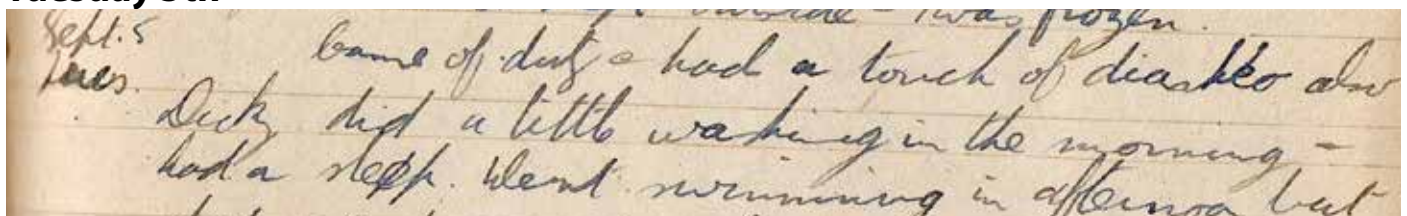 Tuesday 5th
was frozen.
Sept. 5 Came off duty & had a touch of diarrheo also
Tues. Dicky did a little washing in the morning –
had a sleep. Went swimming in afternoon but